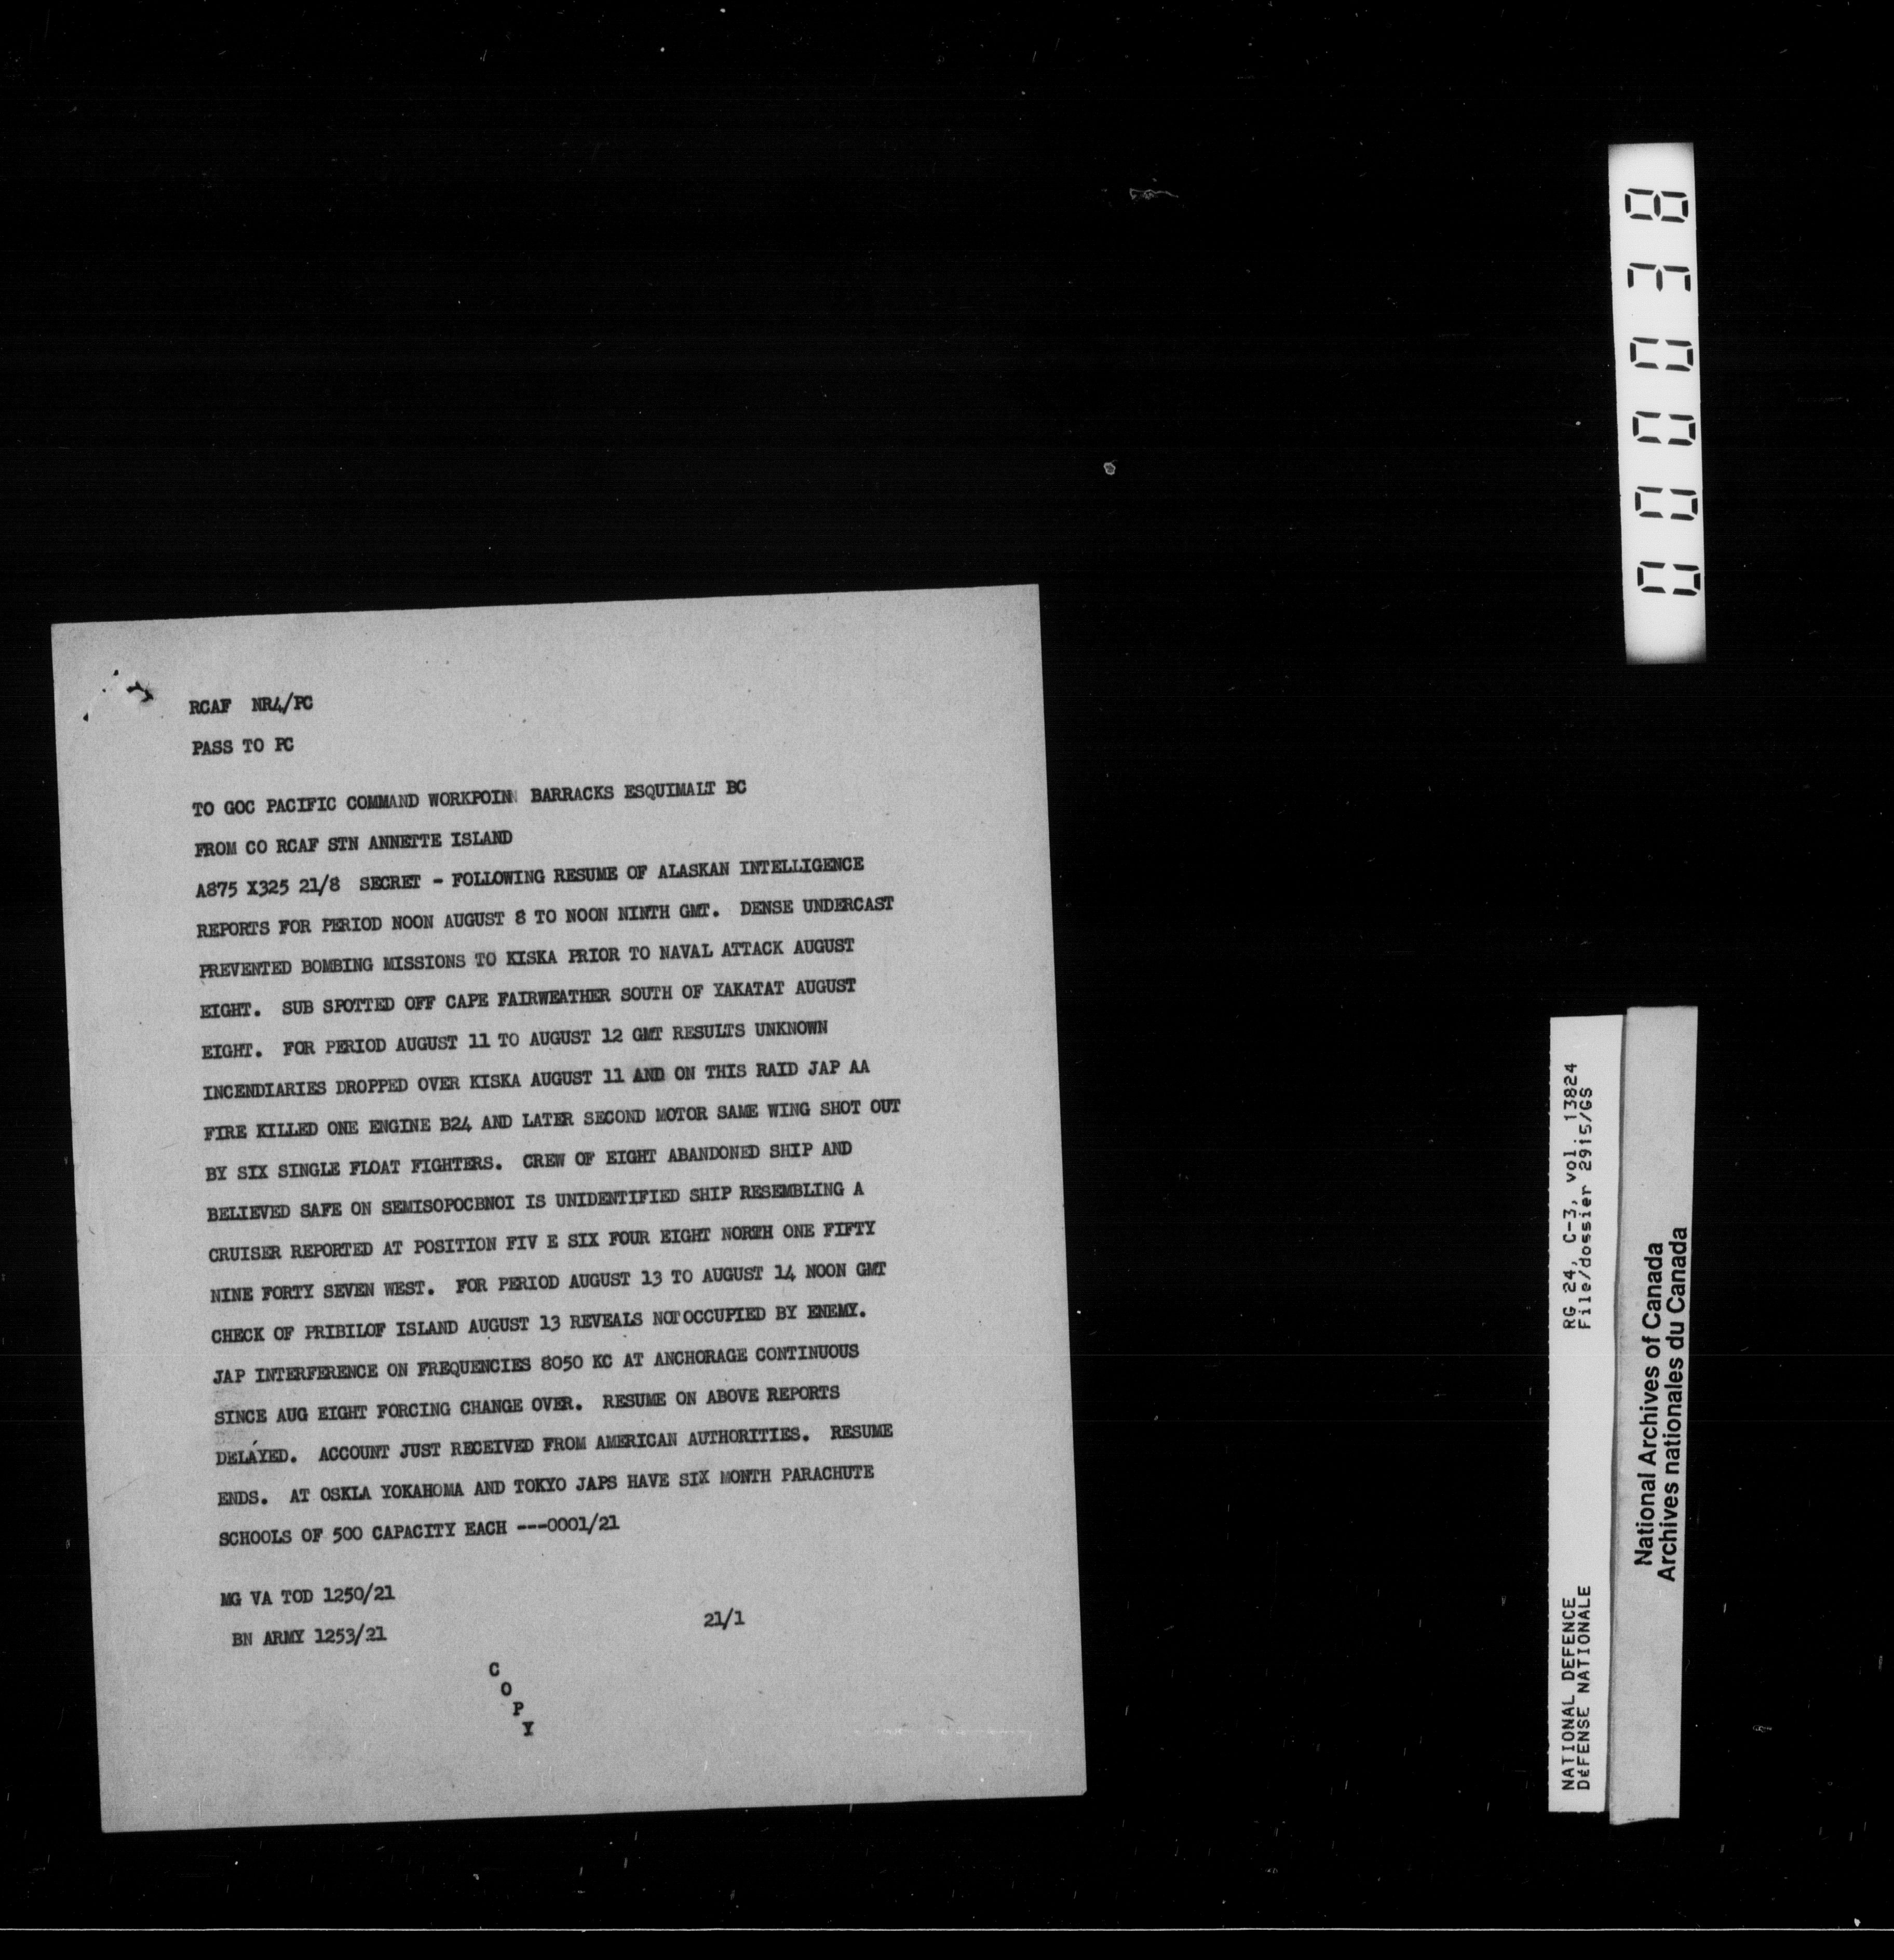 RCAF NR4/PC
PASS TO PC
TO GOC PACIFIC COMMAND WORKPOINN BARRACKS ESQUIMALT BC
FROM CO RCAF STN ANNETTE ISLAND
A875 X325 21/8 SECRET - FOLLOWING RESUME OF ALASKAN INTELLIGENCE
REPORTS FOR PERIOD NOON AUGUST 8 TO NOON NINTH GMT. DENSE UNDERCAST
PREVENTED BOMBING MISSIONS TO KISKA PRIOR TO NAVAL ATTACK AUGUST
EIGHT. SUB SPOTTED OFF CAPE FAIRWEATHER SOUTH OF YAKATAT AUGUST
EIGHT. FOR PERIOD AUGUST 11 TO AUGUST 12 GMT RESULTS UNKNOWN
INCENDIARIES DROPPED OVER KISKA AUGUST 11 AND ON THIS RAID JAP AA
FIRE KILLED ONE ENGINE B24 AND LATER SECOND MOTOR SAME WING SHOT OUT
BY SIX SINGLE FLOAT FIGHTERS. CREW OF EIGHT ABANDONED SHIP AND
BELIEVED SAFE ON SEMISOPOCBNOI IS UNIDENTIFIED SHIP RESEMBLING A
CRUISER REPORTED AT POSITION FIV E SIX FOUR EIGHT NORTH ONE FIFTY
NINE FORTY SEVEN WEST. FOR PERIOD AUGUST 13 TO AUGUST 14 NOON GMT
CHECK OF PRIBILOF ISLAND AUGUST 13 REVEALS NOT OCCUPIED BY ENEMY.
JAP INTERFERENCE ON FREQUENCIES 8050 KC AT ANCHORAGE CONTINUOUS
SINCE AUG EIGHT FORCING CHANGE OVER. RESUME ON ABOVE REPORTS
DELAYED. ACCOUNT JUST RECEIVED FROM AMERICAN AUTHORITIES. RESUME
ENDS. AT OSKLA YOKAHOMA AND TOKYO JAPS HAVE SIX MONTH PARACHUTE
SCHOOLS OF 500 CAPACITY EACH ---0001/21
MG VA TOD 1250/21
BN ARMY 1253/21
21/1
C
O
P
Y
000038
NATIONAL DEFENCE RG 24, C-3, vol. 13824
DéFENSE NATIONALE File/dossier 2915/GS
National Archives of Canada
Archives nationales du Canada